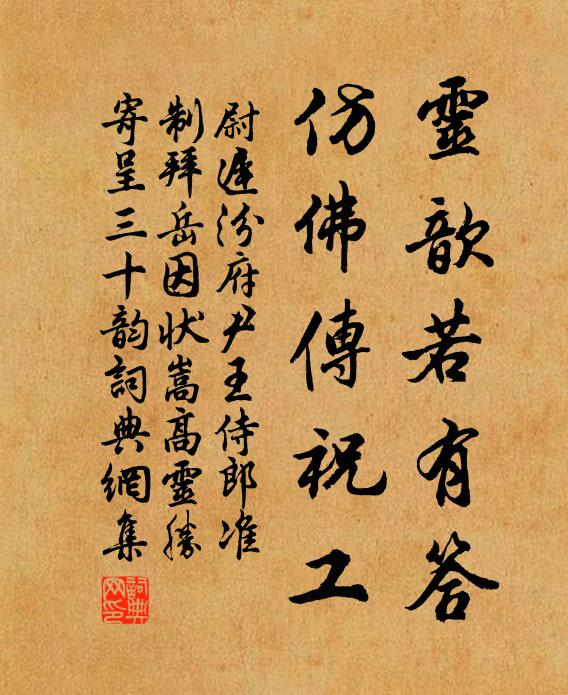 靈歆若有答
仿佛傳祝工
尉遲汾府尹王侍郎准
制拜岳因状嵩高靈勝
寄呈三十韵詞典網集
詞典网印